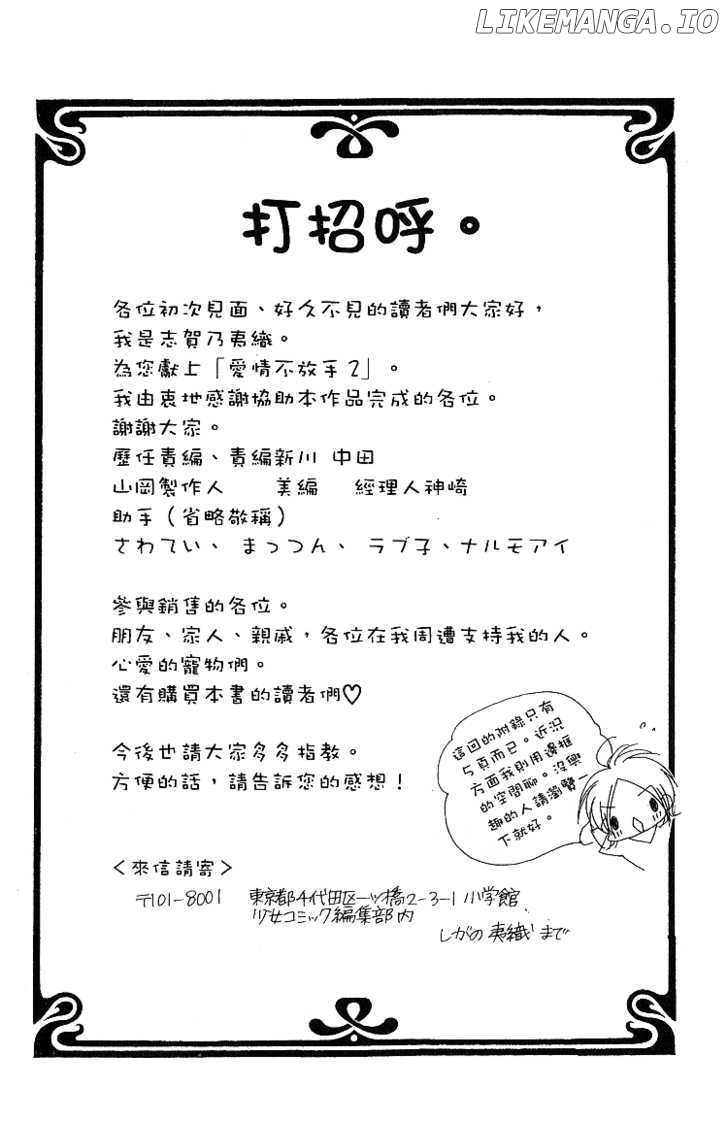 LIKEMANGA.IO
打招呼。
各位初次見面、好久不見的讀者們大家好，
我是志賀乃夷織。
為您獻上「愛情不放手2」。
我由衷地感謝協助本作品完成的各位。
謝謝大家。
歷任責編、責編新川 中田
山岡製作人 美編 經理人神崎
助手（省略敬稱）
さわてい、まっつん、ラブ子、ナルモアイ
參與銷售的各位。
朋友、家人、親戚，各位在我周遭支持我的人。
心愛的寵物們。
還有購買本書的讀者們♡
今後也請大家多多指教。
方便的話，請告訴您的感想！
這回的附錄只有
5頁而已。近況
方面我則用邊框
的空間聊。沒興
趣的人請瀏覽一
下就好。
＜來信請寄＞
〒101-8001 東京都千代田区一ツ橋2-3-1 小学館
少女コミック編集部内
しがの夷織まで